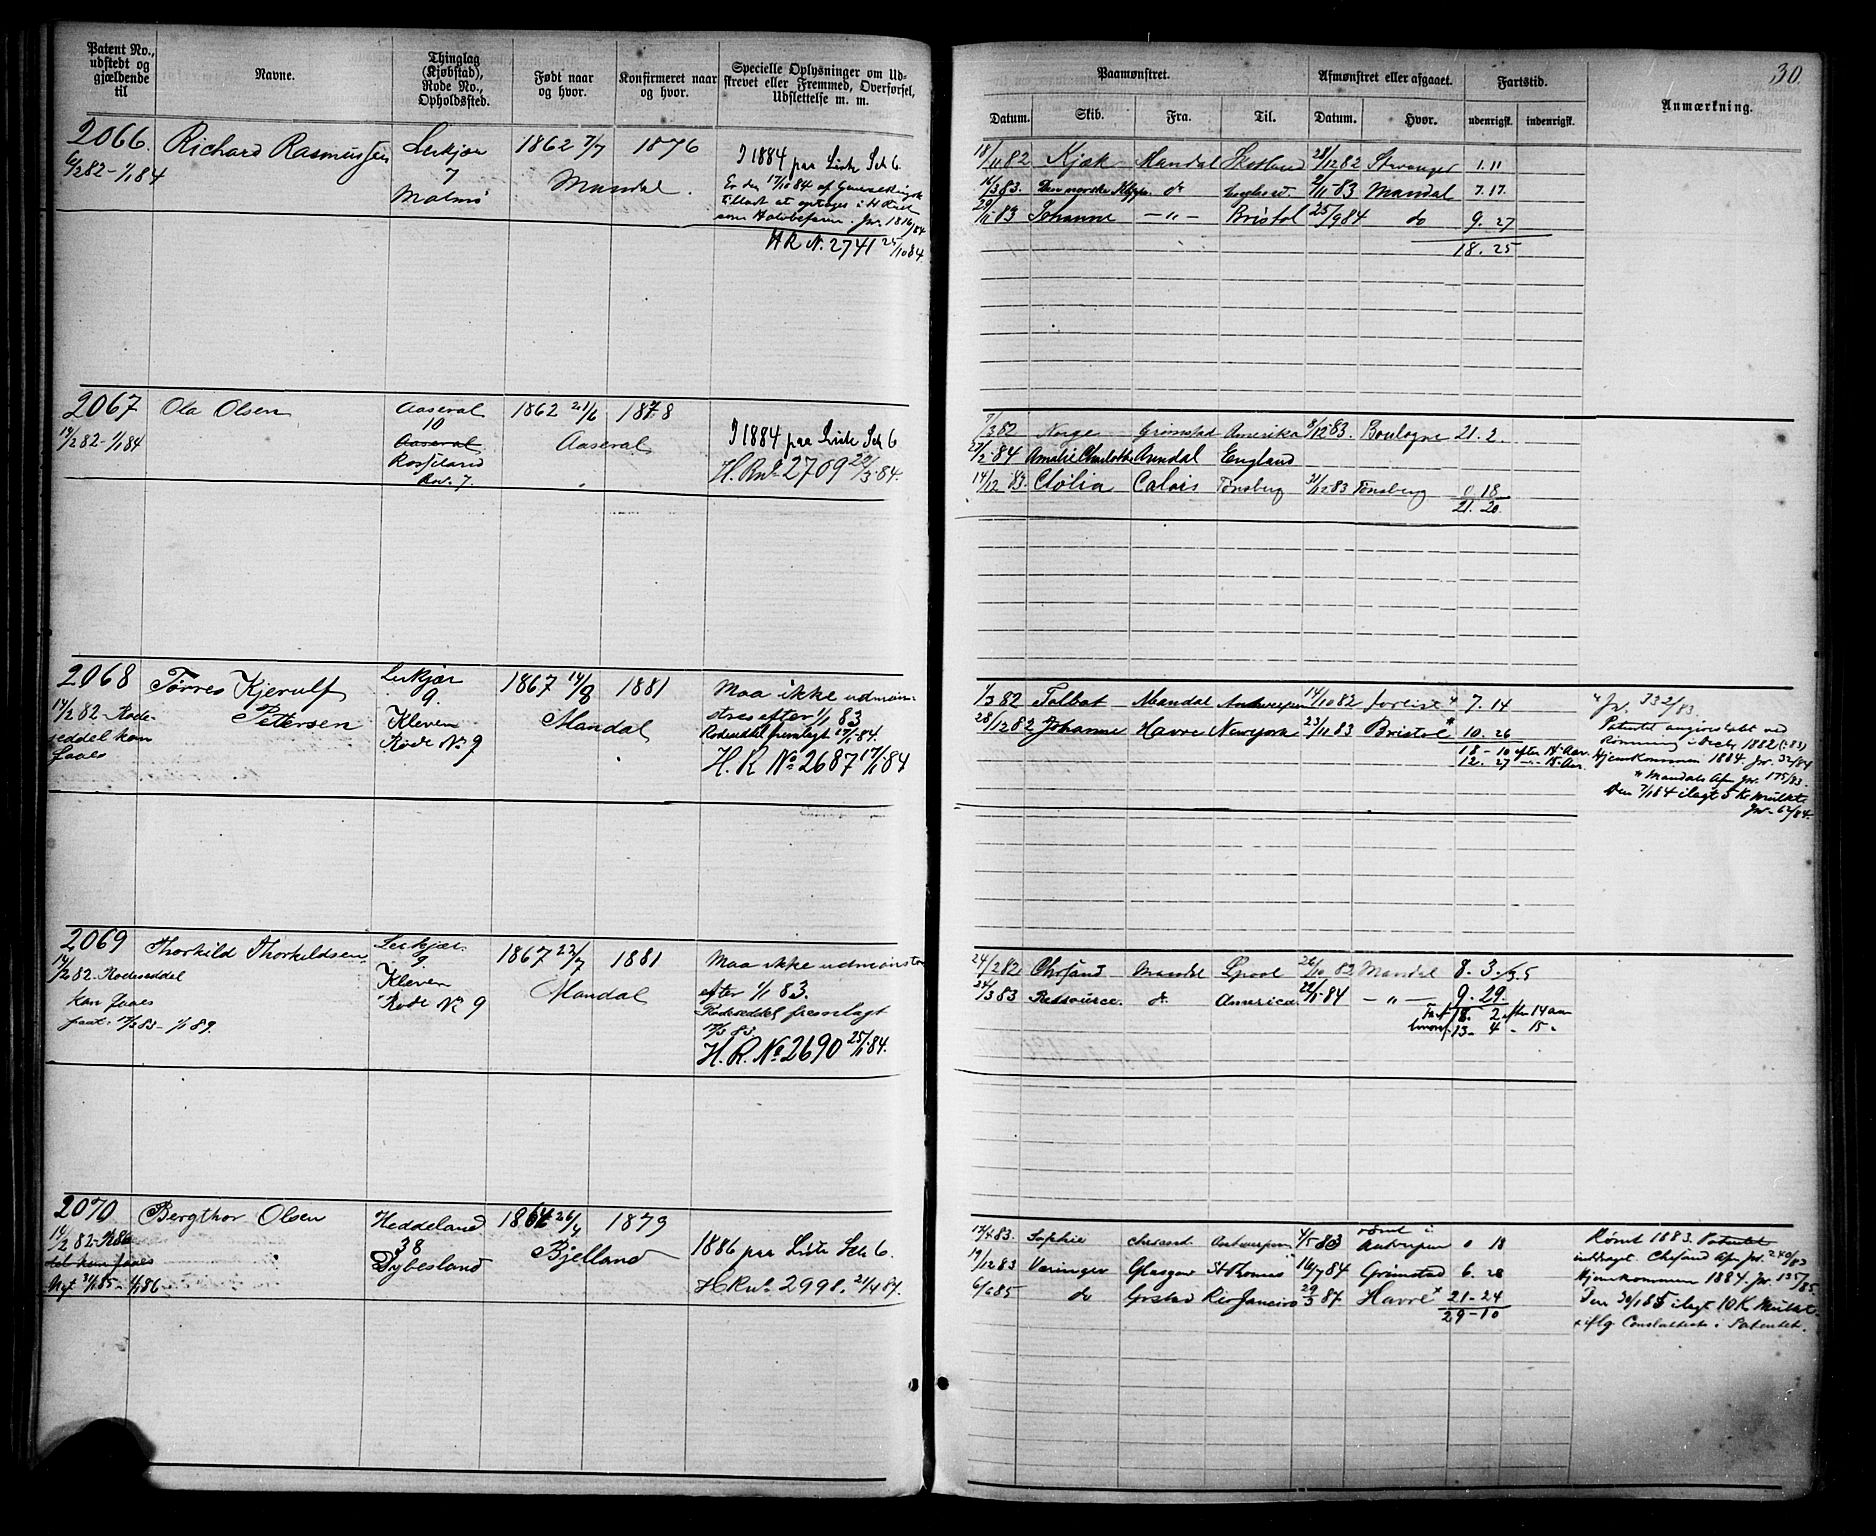 Patent No., udstedt og gjældende til
Navne.
Thinglag (Kjøbstad), Rode No., Opholdssted.
Født naar og hvor.
Konfirmeret naar og hvor.
Specielle Oplysninger om Udskrevet eller Fremmed, Overførsel, Udslettelse m. m.
Paamønstret.
Afmønstret eller afgaaet.
Fartstid.
30.
Datum. Skib. Fra. Til. Datum. Hvor. udenrigsk. indenrigsk.
Anmærkning.
2066. Richard Rasmussen
82 - 1/1 84
7
Malmø
1862 7/7 1876
Mandal.
I 1884 paa Liste Sch 6
Er den 17/10 84 af
som Halvbefaren. Jr. 1816/84
H R N. 2741 25/10 84.
18/11 82 Kjæk Mandal Skotland 28/12 82 Stavanger 1. 11
83. Den norske do 2/11 83 Mandal 7. 17.
29/11 83 Johanne - " - Bristol 25/9 84 do 9. 27
18. 25
2067 Ola Olsen
14/2 82 - 1/1 84
Aaseral
10
Aaseral
Rosseland
7.
1862 21/6 1878
Aaseral
I 1884 paa Liste Sch 6
H. R. No 2709 22/3 84.
7/3 82 Norge Grimstad Amerika 8/12 83. Boulogne 21. 2.
27/2 84 Amalie Charlotte Arendal England
14/12 83. Clølia Calais Tønsberg 31/12 83 Tønsberg 0 18
21. 20
2068 Tørres Kjerulf
Petersen
14/2 82 - Rode-
seddel kan
faaes
9.
Kleven
Rode No 9
1867 14/8 1881
Mandal
Maa ikke udmøn-
stres efter 1/1 83
Rodeseddel fremlagt 17/1 84.
H. R No 2687 17/1 84
1/3 82 Talbot Mandal Antwerpen 14/10 82 forlist " 7. 14
28/12 82 Johanne Havre Newyork 23/11 83 Bristol * 10. 26
18 - 10 efter 14 Aar
12. 27 - " - 15 Aar.
" Jr. 332/83.
Rømning i Decbr 1882 (: 83)
Hjemkommen 1884. Jr. 32/84
* Mandals Afm Jr. 175/83.
Den 7/1 84 ilagt 5 Kr Mulkt.
Jr. 62/84.
2069 Thorkild Thorkildsen
14/2 82. Rodeseddel
kan faaes
faat. 17/3 83 - 1/1 89.
9
Kleven
Rode No 9
1867 22/7 1881
Mandal
Maa ikke udmønstres
efter 1/1 83.
Rodeseddel fremlagt
17/3 83.
H. R. No 2690 25/1 84.
24/2 82. Chrsand Mandal Lpool 26/10 82 Mandal 8. 3.
24/3 83 Ressource. do America 22/1 84 - " - 9. 29.
18. 2 efter 14 aar
13 - 4 - 15 -
2070 Bergthor Olsen
14/2 82 -
del kan faaes
Heddeland
38
Dybesland
1864 26/4 1879
Bjelland
1886 paa Liste Sch 6.
H. R No 2998. 21/4 87.
17/4 83. Sophie Antwerpen 4/5 83 Rømt i
Antverpen 0 18
19/12 83 Væringer Glasgow St Thomas 16/7 84 Grimstad 6. 28
6/6 85 do Grstad Rio Janeiro 29/3 87 Havre + 21 - 24
29 - 10
Rømt 1883. Patentet
inddragt. Chrsand Afm Jr. 240/83
Hjemkommen 1884. Jr. 135/85.
Den 30/1 85 ilagt 10 K Mulkt
+ iflg i Patentet.